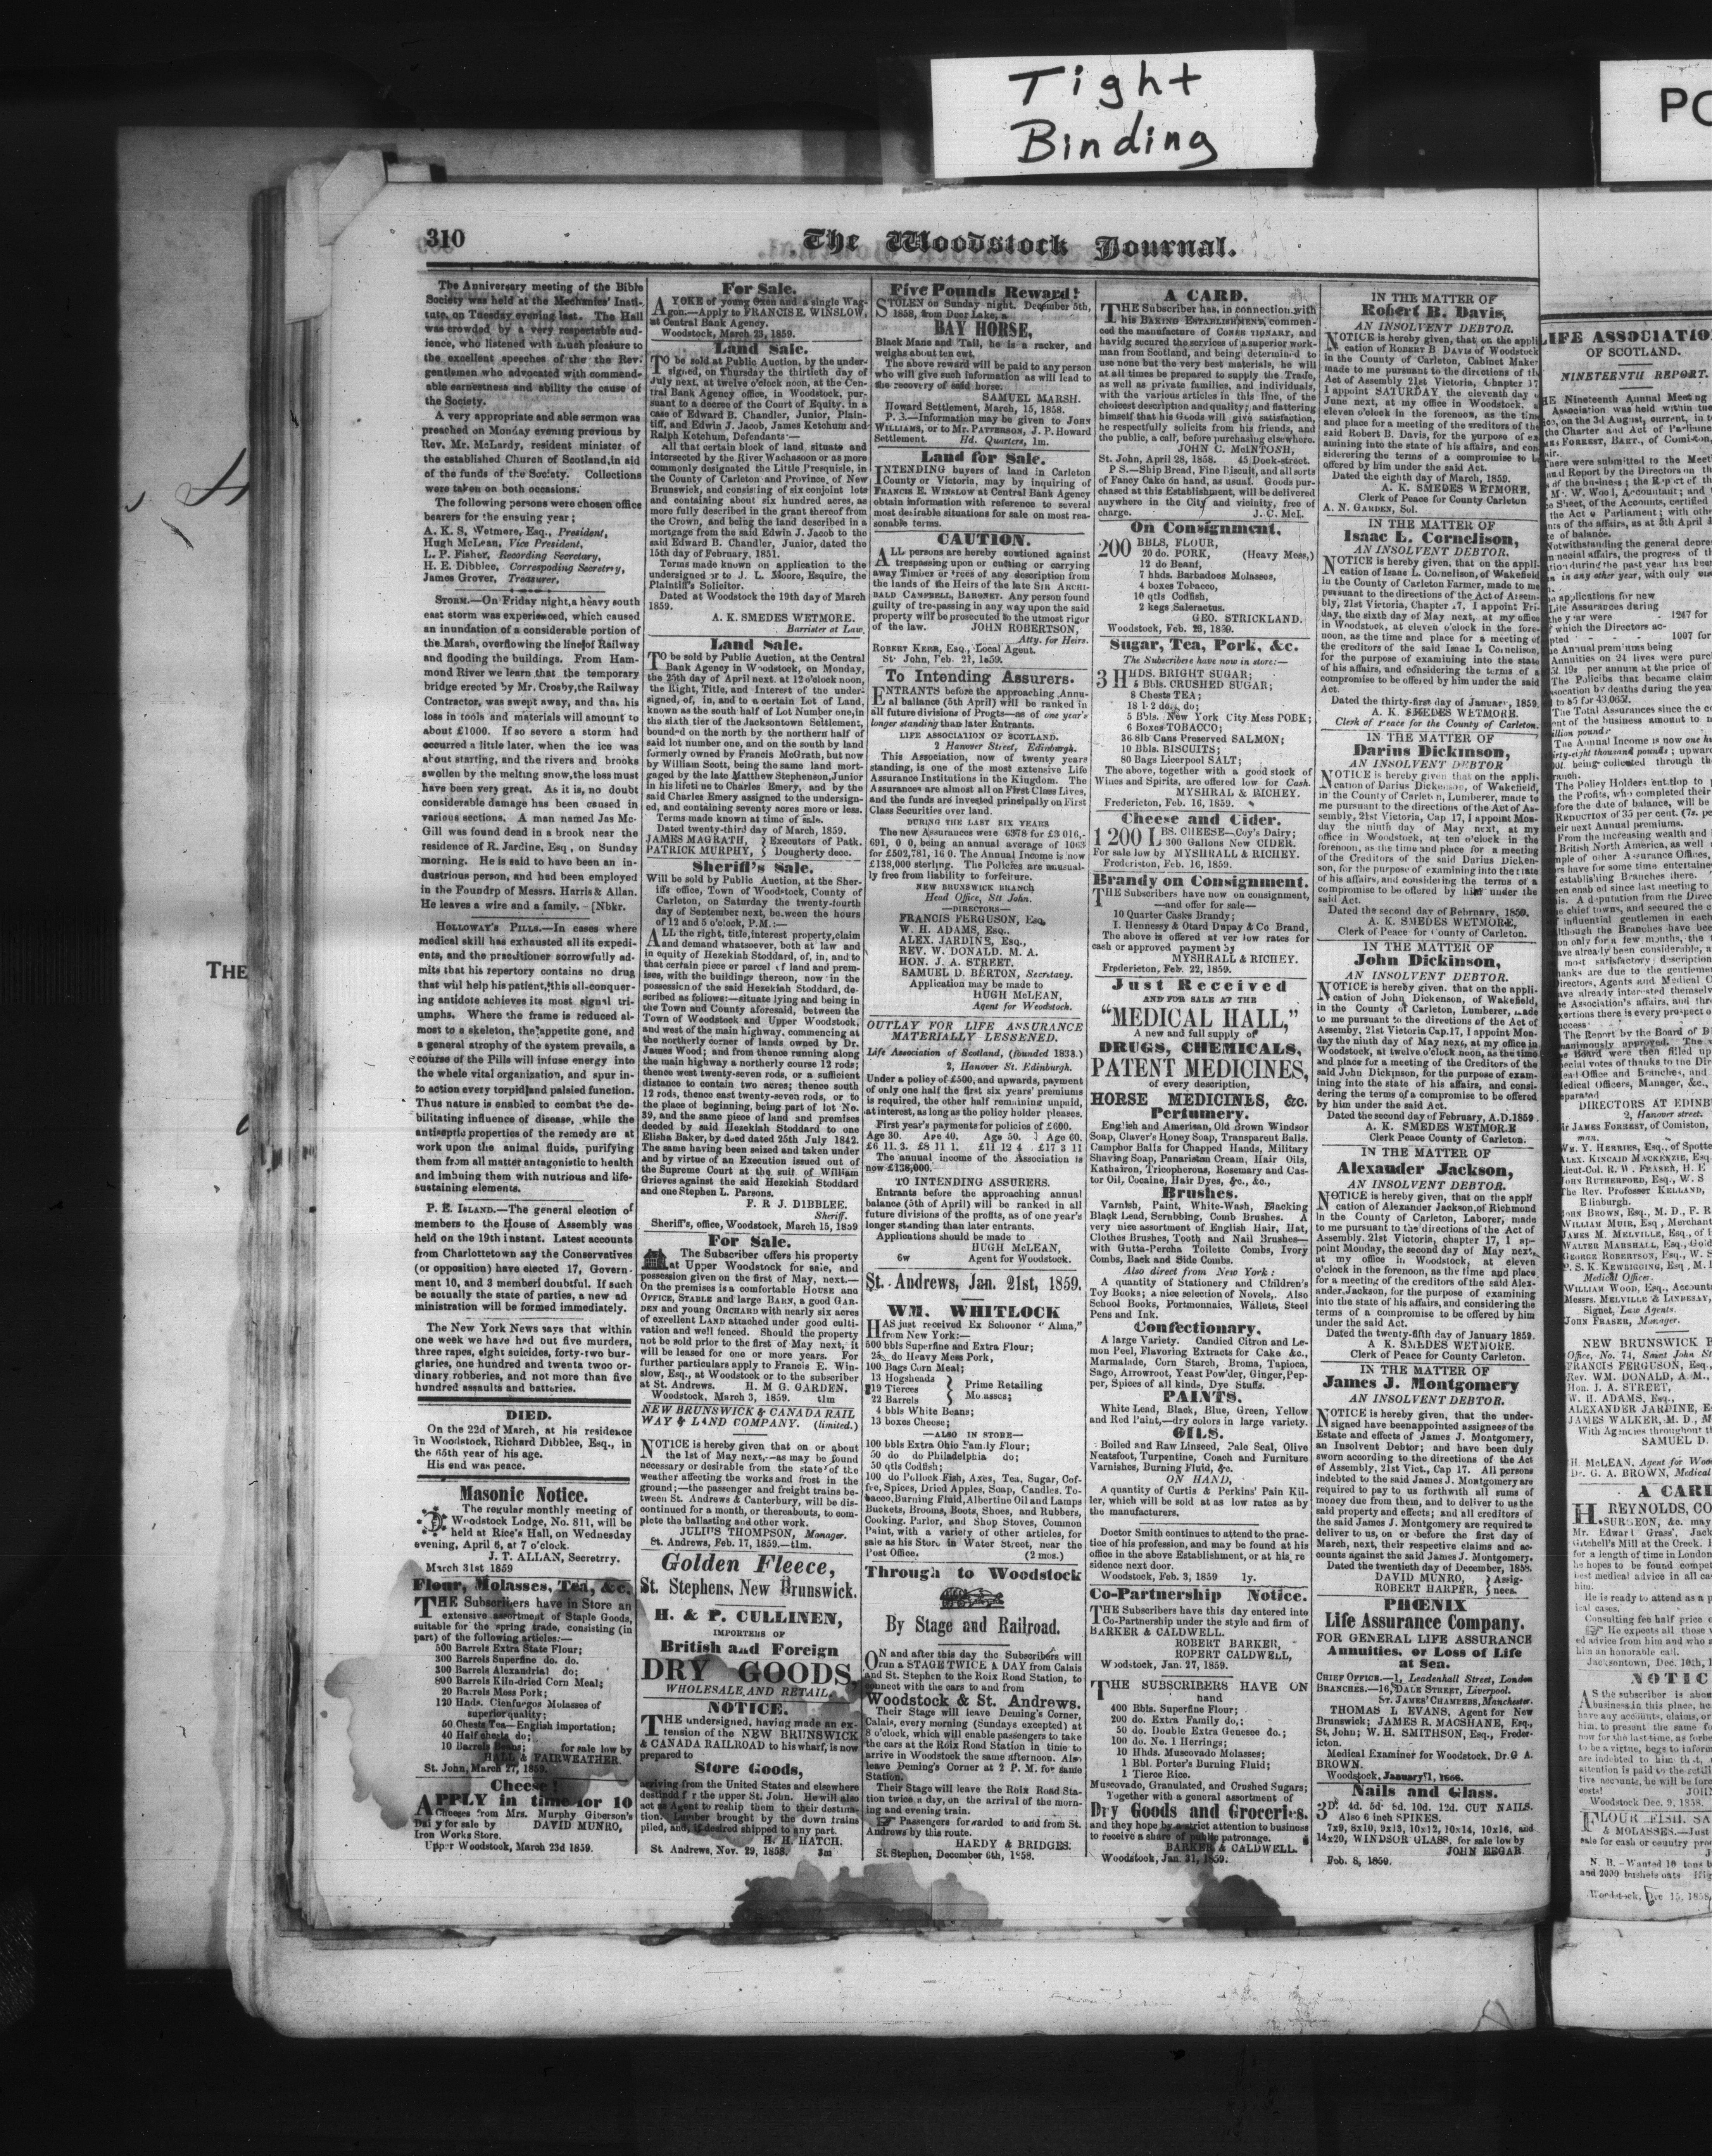 Tight
Binding
PO
THE
310
The Woodstock Journal.
The Anniversary meeting of the Bible
Society was held at the Mechanics' Insti-
tute, on Tuesday evening last. The Hall
was crowded by a very respectable aud-
ience, who listened with much pleasure to
the excellent speeches of the the Rev.
gentlemen who advocated with commend-
able earnestness and ability the cause of
the Society.
A very appropriate and able sermon was
preached on Monday evening previous by
Rev. Mr. McLardy, resident minister of
the established Church of Scotland, in aid
of the funds of the Society. Collections
were taken on both occasions.
The following persons were chosen office
bearers for the ensuing year;
A. K. S. Wetmore, Esq., President,
Hugh McLean, Vice President,
L. P. Fisher, Recording Secretary,
H. E. Dibblee, Correspoding Secretry,
James Grover, Treasurer,
STORM.—On Friday night, a heavy south
east storm was experienced, which caused
an inundation of a considerable portion of
the Marsh, overflowing the line of Railway
and flooding the buildings. From Ham-
mond River we learn that the temporary
bridge erected by Mr. Crosby, the Railway
Contractor, was swept away, and that his
loss in tools and materials will amount to
about £1000. If so severe a storm had
occurred a little later, when the ice was
about starting, and the rivers and brooks
swollen by the melting snow, the loss must
have been very great. As it is, no doubt
considerable damage has been caused in
various sections. A man named Jas Mc-
Gill was found dead in a brook near the
residence of R. Jardine, Esq, on Sunday
morning. He is said to have been an in-
dustrious person, and had been employed
in the Foundrp of Messrs. Harris & Allan.
He leaves a wire and a family. - [Nbkr.
HOLLOWAY'S PILLS.—In cases where
medical skill has exhausted all its expedi-
ents, and the practitioner sorrowfully ad-
mits that his repertory contains no drug
that will help his patient, this all-conquer-
ing antidote achieves its most signal tri-
umphs. Where the frame is reduced al-
most to a skeleton, the appetite gone, and
a general atrophy of the system prevails, a
course of the Pills will infuse energy into
the whole vital organization, and spur in-
to action every torpid and palsied function.
Thus nature is enabled to combat the de-
bilitating influence of disease, while the
antiseptic properties of the remedy are at
work upon the animal fluids, purifying
them from all matter antagonistic to health
and imbuing them with nutrious and life-
sustaining elements.
P. E. ISLAND.—The general election of
members to the House of Assembly was
held on the 19th instant. Latest accounts
from Charlottetown say the Conservatives
(or opposition) have elected 17, Govern-
ment 10, and 3 memberi doubtful. If such
be actually the state of parties, a new ad
ministration will be formed immediately.
The New York News says that within
one week we have had out five murders,
three rapes, eight suicides, forty-two bur-
glaries, one hundred and twenta twoo or-
dinary robberies, and not more than five
hundred assaults and batteries.
DIED.
On the 22d of March, at his residence
in Woodstock, Richard Dibblee, Esq., in
the 65th year of his age.
His end was peace.
Masonic Notice.
The regular monthly meeting of
Woodstock Lodge, No. 811, will be
held at Rice's Hall, on Wednesday
evening, April 6, at 7 o'clock.
J. T. ALLAN, Secretrry.
March 31st 1859
Flour, Molasses, Tea, &c.
THE Subscribers have in Store an
extensive assortment of Staple Goods,
suitable for the spring trade, consisting (in
part) of the following articles:—
500 Barrels Extra State Flour;
300 Barrels Superfine do. do.
300 Barrels Alexandrial do;
800 Barrels Kiln-dried Corn Meal;
20 Barrels Mess Pork;
120 Hhds. Cienfuegos Molasses of
superior quality;
50 Chests Tea—English importation;
40 Half chests do;
10 Barrels Beans; for sale low by
HALL & FAIRWEATHER.
St. John, March 27, 1859.
Cheese!
APPLY in time for 10
Cheeses from Mrs. Murphy Giberson's
Dairy for sale by DAVID MUNRO,
Iron Works Store.
Upper Woodstock, March 23d 1859.
For Sale.
A YOKE of young Oxen and a single Wag-
gon.—Apply to FRANCIS E. WINSLOW,
at Central Bank Agency.
Woodstock, March 23, 1859.
Land Sale.
TO be sold at Public Auction, by the under-
signed, on Thursday the thirtieth day of
July next, at twelve o'clock noon, at the Cen-
tral Bank Agency office, in Woodstock, pur-
suant to a decree of the Court of Equity, in a
case of Edward B. Chandler, Junior, Plain-
tiff, and Edwin J. Jacob, James Ketchum and
Ralph Ketchum, Defendants:—
All that certain block of land, situate and
intersected by the River Wachasoon or as more
commonly designated the Little Presquisle, in
the County of Carleton and Province, of New
Brunswick, and consisting of six conjoint lots
and containing about six hundred acres, as
more fully described in the grant thereof from
the Crown, and being the land described in a
mortgage from the said Edwin J. Jacob to the
said Edward B. Chandler, Junior, dated the
15th day of February, 1851.
Terms made known on application to the
undersigned or to J. L. Moore, Esquire, the
Plaintiff's Solicitor.
Dated at Woodstock the 19th day of March
1859.
A. K. SMEDES WETMORE.
Barrister at Law.
Land Sale.
TO be sold by Public Auction, at the Central
Bank Agency in Woodstock, on Monday,
the 25th day of April next, at 12 o'clock noon,
the Right, Title, and Interest of the under-
signed, of, in, and to a certain Lot of Land,
known as the south half of Lot Number one, in
the sixth tier of the Jacksontown Settlement,
bounded on the north by the northern half of
said lot number one, and on the south by land
formerly owned by Francis McGrath, but now
by William Scott, being the same land mort-
gaged by the late Matthew Stephenson, Junior
in his lifetime to Charles Emery, and by the
said Charles Emery assigned to the undersign-
ed, and containing seventy acres more or less.
Terms made known at time of sale.
Dated twenty-third day of March, 1859.
JAMES MAGRATH, } Executors of Patk.
PATRICK MURPHY, } Dougherty dece.
Sheriff's Sale.
Will be sold by Public Auction, at the Sher-
iffs office, Town of Woodstock, County of
Carleton, on Saturday the twenty-fourth
day of September next, between the hours
of 12 and 5 o'clock, P.M.:—
ALL the right, title, interest property, claim
and demand whatsoever, both at law and
in equity of Hezekiah Stoddard, of, in, and to
that certain piece or parcel of land and prem-
ises, with the buildings thereon, now in the
possession of the said Hezekiah Stoddard, de-
scribed as follows:—situate lying and being in
the Town and County aforesaid, between the
Town of Woodstock and Upper Woodstock,
and west of the main highway, commencing at
the northerly corner of lands owned by Dr.
James Wood; and from thence running along
the main highway a northerly course 12 rods;
thence west twenty-seven rods, or a sufficient
distance to contain two acres; thence south
12 rods, thence east twenty-seven rods, or to
the place of beginning, being part of lot No.
39, and the same piece of land and premises
deeded by said Hezekiah Stoddard to one
Elisha Baker, by deed dated 25th July 1842.
The same having been seized and taken under
and by virtue of an Execution issued out of
the Supreme Court at the suit of William
Grieves against the said Hezekiah Stoddard
and one Stephen L. Parsons.
F. R J. DIBBLEE.
Sheriff.
Sheriff's, office, Woodstock, March 15, 1859
For Sale.
The Subscriber offers his property
at Upper Woodstock for sale, and
possession given on the first of May, next.—
On the premises is a comfortable HOUSE and
OFFICE, STABLE and large BARN, a good GAR-
DEN and young ORCHARD with nearly six acres
of excellent LAND attached under good culti-
vation and well fenced. Should the property
not be sold prior to the first of May next, it
will be leased for one or more years. For
further particulars apply to Francis E. Win-
slow, Esq., at Woodstock or to the subscriber
at St. Andrews. H. M G. GARDEN.
Woodstock, March 3, 1859. t1m
NEW BRUNSWICK & CANADA RAIL
WAY & LAND COMPANY. (limited.)
NOTICE is hereby given that on or about
the 1st of May next,—as may be found
necessary or desirable from the state of the
weather affecting the works and frost in the
ground;—the passenger and freight trains be-
tween St. Andrews & Canterbury, will be dis-
continued for a month, or thereabouts, to com-
plete the ballasting and other work.
JULIUS THOMPSON, Manager.
St. Andrews, Feb. 17, 1859.—t1m.
Golden Fleece,
St. Stephens, New Brunswick.
H. & P. CULLINEN,
IMPORTERS OF
British and Foreign
DRY GOODS,
WHOLESALE AND RETAIL
NOTICE.
THE undersigned, having made an ex-
tension of the NEW BRUNSWICK
& CANADA RAILROAD to his wharf, is now
prepared to
Store Goods,
arriving from the United States and elsewhere
destined for the upper St. John. He will also
act as Agent to reship them to their destina-
tion. Lumber brought by the down trains
piled, and, if desired shipped to any part.
H. H. HATCH.
St. Andrews, Nov. 29, 1858. 3m
Five Pounds Reward!
STOLEN on Sunday night. December 5th,
1858, from Deer Lake, a
BAY HORSE,
Black Mane and Tail, he is a racker, and
weighs about ten cwt.
The above reward will be paid to any person
who will give such information as will lead to
the recovery of said horse.
SAMUEL MARSH.
Howard Settlement, March, 15, 1858.
P. S.—Information may be given to JOHN
WILLIAMS, or to Mr. PATTERSON, J. P. Howard
Settlement. Hd. Quarters, 1m.
Land for Sale.
INTENDING buyers of land in Carleton
County or Victoria, may by inquiring of
FRANCIS E. WINSLOW at Central Bank Agency
obtain information with reference to several
most desirable situations for sale on most rea-
sonable terms.
CAUTION.
ALL persons are hereby cautioned against
trespassing upon or cutting or carrying
away Timber or Trees of any description from
the lands of the Heirs of the late SIR ARCHI-
BALD CAMPBELL, BARONET. Any person found
guilty of trespassing in any way upon the said
property will be prosecuted to the utmost rigor
of the law. JOHN ROBERTSON,
Atty. for Heirs.
ROBERT KERR, Esq., Local Agent.
St. John, Feb. 21, 1859.
To Intending Assurers.
ENTRANTS before the approaching Annu-
al ballance (5th April) will be ranked in
all future divisions of Progts—as of one year's
longer standing than later Entrants.
LIFE ASSOCIATION OF SCOTLAND.
2 Hanover Street, Edinburgh.
This Association, now of twenty years
standing, is one of the most extensive Life
Assurance Institutions in the Kingdom. The
Assurances are almost all on First Class Lives,
and the funds are invested principally on First
Class Securities over land.
DURING THE LAST SIX YEARS
The new Assurances were 6378 for £3 016,-
691, 0 0, being an annual average of 1063
for £502,781, 16 0. The Annual Income is now
£138,000 sterling. The Policies are unusual-
ly free from liability to forfeiture.
NEW BRUNSWICK BRANCH
Head Office, St John.
—DIRECTORS—
FRANCIS FERGUSON, Esq.
W. H. ADAMS, Esq..
ALEX. JARDINE, Esq.,
REV. W. DONALD. M. A.
HON. J. A. STREET.
SAMUEL D. BERTON, Secretaey.
Application may be made to
HUGH McLEAN,
Agent for Woodstock.
OUTLAY FOR LIFE ASSURANCE
MATERIALLY LESSENED.
Life Association of Scotland, (founded 1838.)
2, Hanover St. Edinburgh.
Under a policy of £500, and upwards, payment
of only one half the first six years' premiums
is required, the other half remaining unpaid,
at interest, as long as the policy holder pleases.
First year's payments for policies of £600.
Age 30. Age 40. Age 50. Age 60.
£6 11. 3. £8 11 1. £11 12 4 . £17 3 11
The annual income of the Association is
now £138,000.
TO INTENDING ASSURERS.
Entrants before the approaching annual
balance (5th of April) will be ranked in all
future divisions of the profits, as of one year's
longer standing than later entrants.
Applications should be made to
HUGH McLEAN,
6w Agent for Woodstock.
St. Andrews, Jan. 21st, 1859.
WM. WHITLOCK
HAS just received Ex Schooner "Alma,"
from New York:—
500 bbls Superfine and Extra Flour;
25 do Heavy Mess Pork,
100 Bags Corn Meal;
13 Hogsheads
19 Tierces } Prime Retailing
22 Barrels } Molasses;
4 bbls White Beans;
13 boxes Cheese;
—ALSO IN STORE—
100 bbls Extra Ohio Family Flour;
50 do do Philadelphia do;
50 qtls Codfish;
100 do Pollock Fish, Axes, Tea, Sugar, Cof-
fee, Spices, Dried Apples, Soap, Candles. To-
bacco, Burning Fluid, Albertine Oil and Lamps
Buckets, Brooms, Boots, Shoes, and Rubbers,
Cooking, Parlor, and Shop Stoves, Common
Paint, with a variety of other articles, for
sale as his Store in Water Street, near the
Post Office. (2 mos.)
Through to Woodstock
By Stage and Railroad.
ON and after this day the Subscribers will
run a STAGE TWICE A DAY from Calais
and St. Stephen to the Roix Road Station, to
connect with the cars to and from
Woodstock & St. Andrews.
Their Stage will leave Deming's Corner,
Calais, every morning (Sundays excepted) at
8 o'clock, which will enable passengers to take
the cars at the Roix Road Station in time to
arrive in Woodstock the same afternoon. Also
leave Deming's Corner at 2 P. M. for same
Station.
Their Stage will leave the Roix Road Sta-
tion twice a day, on the arrival of the morn-
ing and evening train.
Passengers forwarded to and from St.
Andrews by this route.
HARDY & BRIDGES.
St. Stephen, December 6th, 1858.
A CARD.
THE Subscriber has, in connection with
his BAKING ESTABLISHMENT, commen-
ced the manufacture of CONFECTIONARY, and
havidg secured the services of a superior work-
man from Scotland, and being determined to
use none but the very best materials, he will
at all times be prepared to supply the Trade,
as well as private families, and individuals,
with the various articles in this line, of the
choicest description and quality; and flattering
himself that his Goods will give satisfaction,
he respectfully solicits from his friends, and
the public, a call, before purchasing elsewhere.
JOHN C. McINTOSH,
St. John, April 28, 1858. 45 Dock-street.
P S.—Ship Bread, Fine Biscuit, and all sorts
of Fancy Cake on hand, as usual. Goods pur-
chased at this Establishment, will be delivered
anywhere in the City and vicinity, free of
charge. J. C. McI.
On Consignment,
200 BBLS, FLOUR,
20 do. PORK, (Heavy Mess,)
12 do Beanf,
7 hhds. Barbadoes Molasses,
4 boxes Tobacco,
10 qtls Codfish,
2 kegs Saleraetus.
GEO. STRICKLAND.
Woodstock, Feb. 23, 1859.
Sugar, Tea, Pork, &c.
The Subscribers have now in store:—
3 HHDS. BRIGHT SUGAR;
5 Bbls. CRUSHED SUGAR;
8 Chests TEA;
18 1-2 do. do;
5 Bbls. New York City Mess POBE;
6 Boxes TOBACCO;
36 8lb Cans Preserved SALMON;
10 Bbls. BISCUITS;
80 Bags Licerpool SALT;
The above, together with a good stock of
Wines and Spirits, are offered low for Cash.
MYSHRAL & RICHEY.
Fredericton, Feb. 16, 1859.
Cheese and Cider.
1200 LBS. CHEESE—Coy's Dairy;
300 Gallons New CIDER.
For sale low by MYSHRALL & RICHEY.
Frederiston, Feb. 16, 1859.
Brandy on Consignment.
THE Subscribers have now on consignment,
—and offer for sale—
10 Quarter Casks Brandy;
I. Hennessy & Otard Dupay & Co Brand,
The above is offered at ver low rates for
cash or approved payment by
MYSHRALL & RICHEY.
Frpdericton, Feb. 22, 1859.
Just Received
AND FOR SALE AT THE
"MEDICAL HALL,"
A new and full supply of
DRUGS, CHEMICALS,
PATENT MEDICINES,
of every description,
HORSE MEDICINES, &c.
Perfumery.
English and Amerisan, Old Brown Windsor
Soap, Claver's Honey Soap, Transparent Balls.
Camphor Balls for Chapped Hands, Military
Shaving Soap, Panariston Cream, Hair Oils,
Kathairon, Tricopherous, Rosemary and Cas-
tor Oil, Cocaine, Hair Dyes, &c., &c.,
Brushes.
Varnish, Paint, White-Wash, Blacking
Black Lead, Scrubbing, Comb Brushes. A
very nice assortment of English Hair, Hat,
Clothes Brushes, Tooth and Nail Brushes—
with Gutta-Percha Toilette Combs, Ivory
Combs, Back and Side Combs.
Also direct from New York:
A quantity of Stationery and Children's
Toy Books; a nice selection of Novels,. Also
School Books, Portmonnaies, Wallets, Steel
Pens and Ink.
Confectionary.
A large Variety. Candied Citron and Le-
mon Peel, Flavoring Extracts for Cake &c.,
Marmalade, Corn Starch, Broma, Tapioca,
Sago, Arrowroot, Yeast Powder, Ginger, Pep-
per, Spices of all kinds, Dye Stuffs.
PAINTS.
White Lead, Black, Blue, Green, Yellow
and Red Paint,—dry colors in large variety.
OILS.
Boiled and Raw Linseed, Pale Seal, Olive
Neatsfoot, Turpentine, Coach and Furniture
Varnishes, Burning Fluid, &c.
ON HAND,
A quantity of Curtis & Perkins' Pain Kil-
ler, which will be sold at as low rates as by
the manufacturers.
Doctor Smith continues to attend to the prac-
tice of his profession, and may be found at his
office in the above Establishment, or at his re
sidence next door.
Woodstock, Feb. 3, 1859 1y.
Co-Partnership Notice.
THE Subscribers have this day entered into
Co-Partnership under the style and firm of
BARKER & CALDWELL.
ROBERT BARKER,
ROPERT CALDWELL,
Woodstock, Jan. 27, 1859.
THE SUBSCRIBERS HAVE ON
hand
400 Bbls. Superfine Flour;
200 do. Extra Family do,;
50 do. Double Extra Genesee do.;
100 do. No. 1 Herrings;
10 Hhds. Muscovado Molasses;
1 Bbl. Porter's Burning Fluid;
1 Tierce Rice.
Muscovado, Granulated, and Crushed Sugars;
Together with a general assortment of
Dry Goods and Groceries.
and they hope by astrict attention to business
to receive a share of public patronage.
BARKER & CALDWELL.
Woodstock, Jan. 31, 1859.
IN THE MATTER OF
Robert B. Davis,
AN INSOLVENT DEBTOR.
NOTICE is hereby given, that on the appli
cation of ROBERT B DAVIS of Woodstock
in the County of Carleton, Cabinet Maker
made to me pursuant to the directions of the
Act of Assembly 21st Victoria, Chapter 17
I appoint SATURDAY the eleventh day
June next, at my office in Woodstock, a
eleven o'clock in the forenoon, as the time
and place for a meeting of the creditors of the
said Robert B. Davis, for the purpose of ex
amining into the state of his affairs, and con
siderering the terms of a compromise to be
offered by him under the said Act.
Dated the eighth day of March, 1859.
A. K. SMEDES WETMORE,
Clerk of Peace for County Carleton
A. N. GARDEN, Sol.
IN THE MATTER OF
Isaac L. Cornelison,
AN INSOLVENT DEBTOR.
NOTICE is hereby given, that on the appli-
cation of Isaac L. Cornelison, of Wakefield
in the County of Carleton Farmer, made to me
pursuant to the directions of the Act of Assem-
bly, 21st Victoria, Chapter 17, I appoint Fri-
day, the sixth day of May next, at my office
in Woodstock, at eleven o'clock in the fore-
noon, as the time and place for a meeting of
the creditors of the said Isaac L Cornelison,
for the purpose of examining into the state
of his affairs, and considering the terms of a
compromise to be offered by him under the said
Act.
Dated the thirty-first day of January, 1859.
A. K. SMEDES WETMORE.
Clerk of Peace for the County of Carleton.
IN THE MATTER OF
Darius Dickinson,
AN INSOLVENT DEBTOR
NOTICE is hereby given that on the appli-
cation of Darius Dickenson, of Wakefield,
in the County of Carleton, Lumberer, made to
me pursuant to the directions of the Act of As-
sembly, 21st Victoria, Cap 17, I appoint Mon-
day the ninth day of May next, at my
office in Woodstock, at ten o'clock in the
forenoon, as the time and place for a meeting
of the Creditors of the said Darius Dicken-
son, for the purpose of examining into the state
of his affairs, and considering the terms of a
compromise to be offered by him under the
said Act.
Dated the second day of Rebruary, 1859.
A. K. SMEDES WETMORE,
Clerk of Peace for County of Carleton.
IN THE MATTER OF
John Dickinson,
AN INSOLVENT DEBTOR.
NOTICE is hereby given. that on the appli-
cation of John Dickenson, of Wakefield,
in the County of Carleton, Lumberer, made
to me pursuant to the directions of the Act of
Assemby, 21st Victoria Cap.17, I appoint Mon-
day the ninth day of May next, at my office in
Woodstock, at twelve o'clock noon, as the time
and place for a meeting of the Creditors of the
said John Dickpnson, for the purpose of exam-
ining into the state of his affairs, and consi-
dering the terms of a compromise to be offered
by him under the said Act.
Dated the second day of February, A.D.1859.
A. K. SMEDES WETMORE
Clerk Peace County of Carleton.
IN THE MATTER OF
Alexander Jackson,
AN INSOLVENT DEBTOR.
NOTICE is hereby given, that on the appli
cation of Alexander Jackson, of Richmond
in the County of Carleton, Laborer, made
to me pursuant to the directions of the Act of
Assembly. 21st Victoria, chapter 17, I ap-
point Monday, the second day of May next,
at my office in Woodstock, at eleven
o'clock in the forenoon, as the time and place
for a meeting of the creditors of the said Alex-
ander Jackson, for the purpose of examining
into the state of his affairs, and considering the
terms of a compromise to be offered by him
under the said Act.
Dated the twenty-fifth day of January 1859.
A K. SMEDES WETMORE.
Clerk of Peace for County Carleton.
IN THE MATTER OF
James J. Montgomery
AN INSOLVENT DEBTOR.
NOTICE is hereby given, that the under-
signed have beenappointed assignees of the
Estate and effects of James J. Montgomery,
an Insolvent Debtor; and have been duly
sworn according to the directions of the Act
of Assembly, 21st Vict., Cap 17. All persons
indebted to the said James J. Montgomery are
required to pay to us forthwith all sums of
money due from them, and to deliver to us the
said property and effects; and all creditors of
the said James J. Montgomery are required to
deliver to us, on or before the first day of
March, next, their respective claims and ac-
counts against the said James J. Montgomery.
Dated the twentieth day of December, 1858.
DAVID MUNRO, } Assig-
ROBERT HARPER, } nees.
PHŒNIX
Life Assurance Company.
FOR GENERAL LIFE ASSURANCE
Annuities, or Loss of Life
at Sea.
CHIEF OFFICE.—1, Leadenhall Street, London
BRANCHES.—16, DALE STREET, Liverpool.
ST. JAMES' CHAMBERS, Manchester.
THOMAS L EVANS, Agent for New
Brunswick; JAMES R. MACSHANE, Esq.,
St, John; W. H. SMITHSON, Esq., Freder-
icton.
Medical Examiner for Woodstock, Dr. G A.
BROWN.
Woodstock, January 1,
Nails and Glass.
3D. 4d. 5d. 8d. 10d. 12d. CUT NAILS.
Also 6 inch SPIKES.
7x9, 8x10, 9x13, 10x12, 10x14, 10x16, and
14x20, WINDSOR GLASS, for sale low by
JOHN EDGAR.
Feb. 8, 1859.
LIFE ASSOCIATIO
OF SCOTLAND.
NINETEENTH REPORT.
Nineteenth Annual Meeting
Association was held within
on the 3d August, current, in
the Charter and Act of Parliame
FORREST, BART., of Comiston,
There were submitted to the Meet
Report by the Directors on the
of the business; the Report of the
Mr. W. Wood, Accountant; and
Sheet, of the Accounts, certified
the Act of Parliament; with oth
of the affairs, as at 5th April
of balance.
Notwithstanding the general depre
affairs, the progress of th
during the past year has been
in any other year, with only
applications for new
Life Assurances during
the year were 1247 for
which the Directors ac-
1007 for
Annual premiums being
Annuities on 24 lives were
19s per annum at the price of
The Policies that became claim
by deaths during the year
to 85 for 43,065l.
The Total Assurances since the
of the business amount to
million pounds
The Annual Income is now one
thirty-eight thousand pounds; upward
being collected through
The Policy Holders entitled to
the Profits, who completed their
before the date of balance, will be
REDUCTION of 35 per cent. (7s.
their next Annual premiums.
From the increasing wealth and
British North America, as well
of other Assurance Offices,
have for some time entertained
establishing Branches there.
since last meeting to
A deputation from the Direc
chief towns, and secured the
influential gentlemen in each
Although the Branches have
only for a few months, the
already been considerable,
most satisfactory description
thanks are due to the gentlemen
Directors, Agents and Medical
already interested themselv
Association's affairs, and
exertions there is every prospect
success
The Report by the Board of
unanimously approved. The
Board were then filled up
votes of thanks to the Dir
Office and Branches, and
Medical Officers, Manager, &c.,
separated
DIRECTORS AT EDINB
2, Hanover street.
JAMES FORREST, of Comiston,
WM. Y. HERRIES, Esq., of Spotte
ALEX. KINCAID MACKENZIE, Esq.
Lieut-Col. R. W. FRASER, H. E
JOHN RUTHERFORD, Esq., W. S
The Rev. Professor KELLAND,
Edinburgh.
JOHN BROWN, Esq., M. D., F. R
WILLIAM MUIR, Esq, Merchant
JAMES M. MELVILLE, Esq., of
WALTER MARSHALL, Esq., Gold
GEORGE ROBERTSON, Esq., W. S
P. S. K. NEWBIGGING, Esq, M.
Medical Officer.
WILLIAM WOOD, Esq., Account
Messrs. MELVILLE & LINDESAY,
Signet, Law Agents.
JOHN FRASER, Manager.
NEW BRUNSWICK B
Office, No. 74, Saint John St
FRANCIS FERGUSON, Esq.,
Rev. WM. DONALD, A M.,
Hon. J. A. STREET,
W. H. ADAMS, Esq.,
ALEXANDER JARDINE,
JAMES WALKER, M. D.,
With Agencies throughout
SAMUEL D.
H. McLEAN, Agent for Wood
Dr. G. A. BROWN, Medical
A CARD
REYNOLDS, CO
SURGEON, &c. may
Mr. Edward Grass', Jack
Mitchell's Mill at the Creek.
for a length of time in London
he hopes to be found compet
best medical advice in all ca
him.
He is ready to attend as a
ical cases.
Consulting fee half price
He expects all those
ed advice from him and who
him an honorable call.
Jacksontown, Dec. 10th,
NOTIC
AS the subscriber is about
business in this place, he
have any accounts, claims, or
him, to present the same
now for the last time, as
to be a virtue, begs to inform
are indebted to him that,
attention is paid to the
tive accounts, he will be forc
costs!
Woodstock Dec. 9, 1858.
FLOUR FISH. SA
& MOLASSES.—Just
sale for cash or country pro
N. B.—Wanted 10 tons
and 2000 bushels oats
Woodstock, Dec 15, 1858,